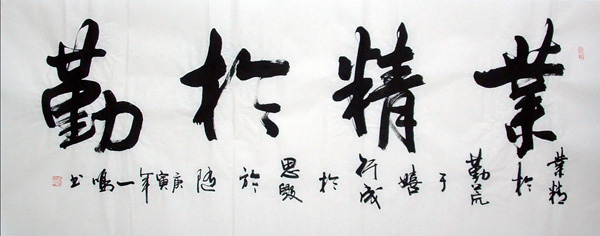 業精於勤
業精於勤荒于嬉行成於思毀於隨庚寅年一鳴书